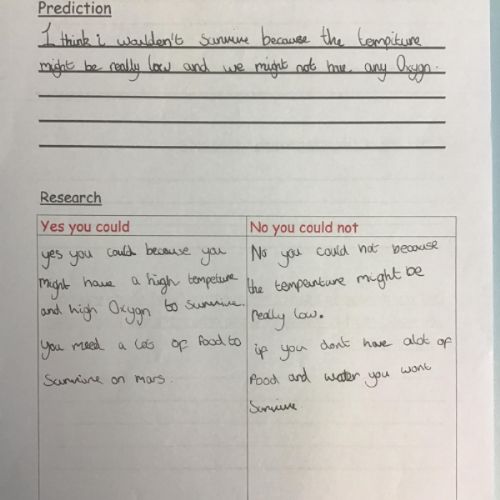 Prediction
I think i woulden't survive because the tempiture
might be really low and we might not have any Oxygn.
Research
Yes you could
No you could not
yes you could because you
might have a high tempeture
and high Oxygn to survive.
you need a lots of food to
Survive on mars.
No you could not because
the tempeuture might be
really low.
if you dont have alot of
food and water you wont
Survive